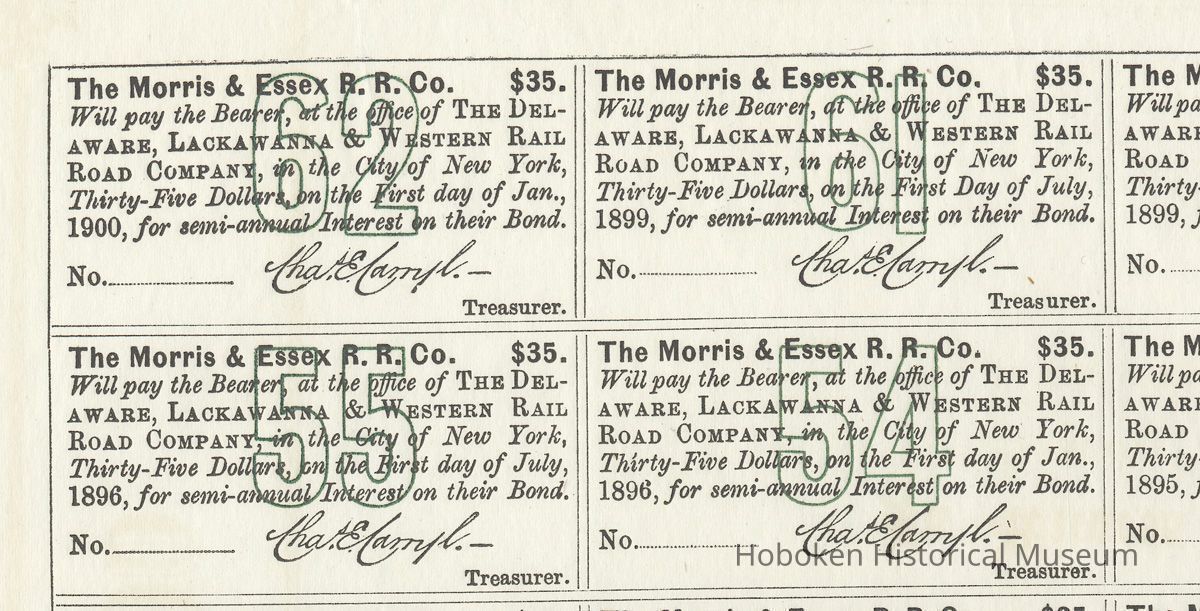 The Morris & Essex R. R. Co. $35.
Will pay the Bearer, at the office of THE DEL-
AWARE, LACKAWANNA & WESTERN RAIL
ROAD COMPANY, in the City of New York,
Thirty-Five Dollars, on the First day of Jan.,
1900, for semi-annual Interest on their Bond.
62
No.
Treasurer.
The Morris & Essex R. R. Co. $35.
Will pay the Bearer, at the office of THE DEL-
AWARE, LACKAWANNA & WESTERN RAIL
ROAD COMPANY, in the City of New York,
Thirty-Five Dollars, on the First Day of July,
1899, for semi-annual Interest on their Bond.
61
No.
Treasurer.
The M
Will pa
AWARE
ROAD
Thirty-
1899, f
No.
The Morris & Essex R. R. Co. $35.
Will pay the Bearer, at the office of THE DEL-
AWARE, LACKAWANNA & WESTERN RAIL
ROAD COMPANY, in the City of New York,
Thirty-Five Dollars, on the First day of July,
1896, for semi-annual Interest on their Bond.
55
No.
Treasurer.
The Morris & Essex R. R. Co. $35.
Will pay the Bearer, at the office of THE DEL-
AWARE, LACKAWANNA & WESTERN RAIL
ROAD COMPANY, in the City of New York,
Thirty-Five Dollars, on the First day of Jan.,
1896, for semi-annual Interest on their Bond.
54
No.
Treasurer.
The M
Will pa
AWARE
ROAD
Thirty-
1895, f
No.
Hoboken Historical Museum